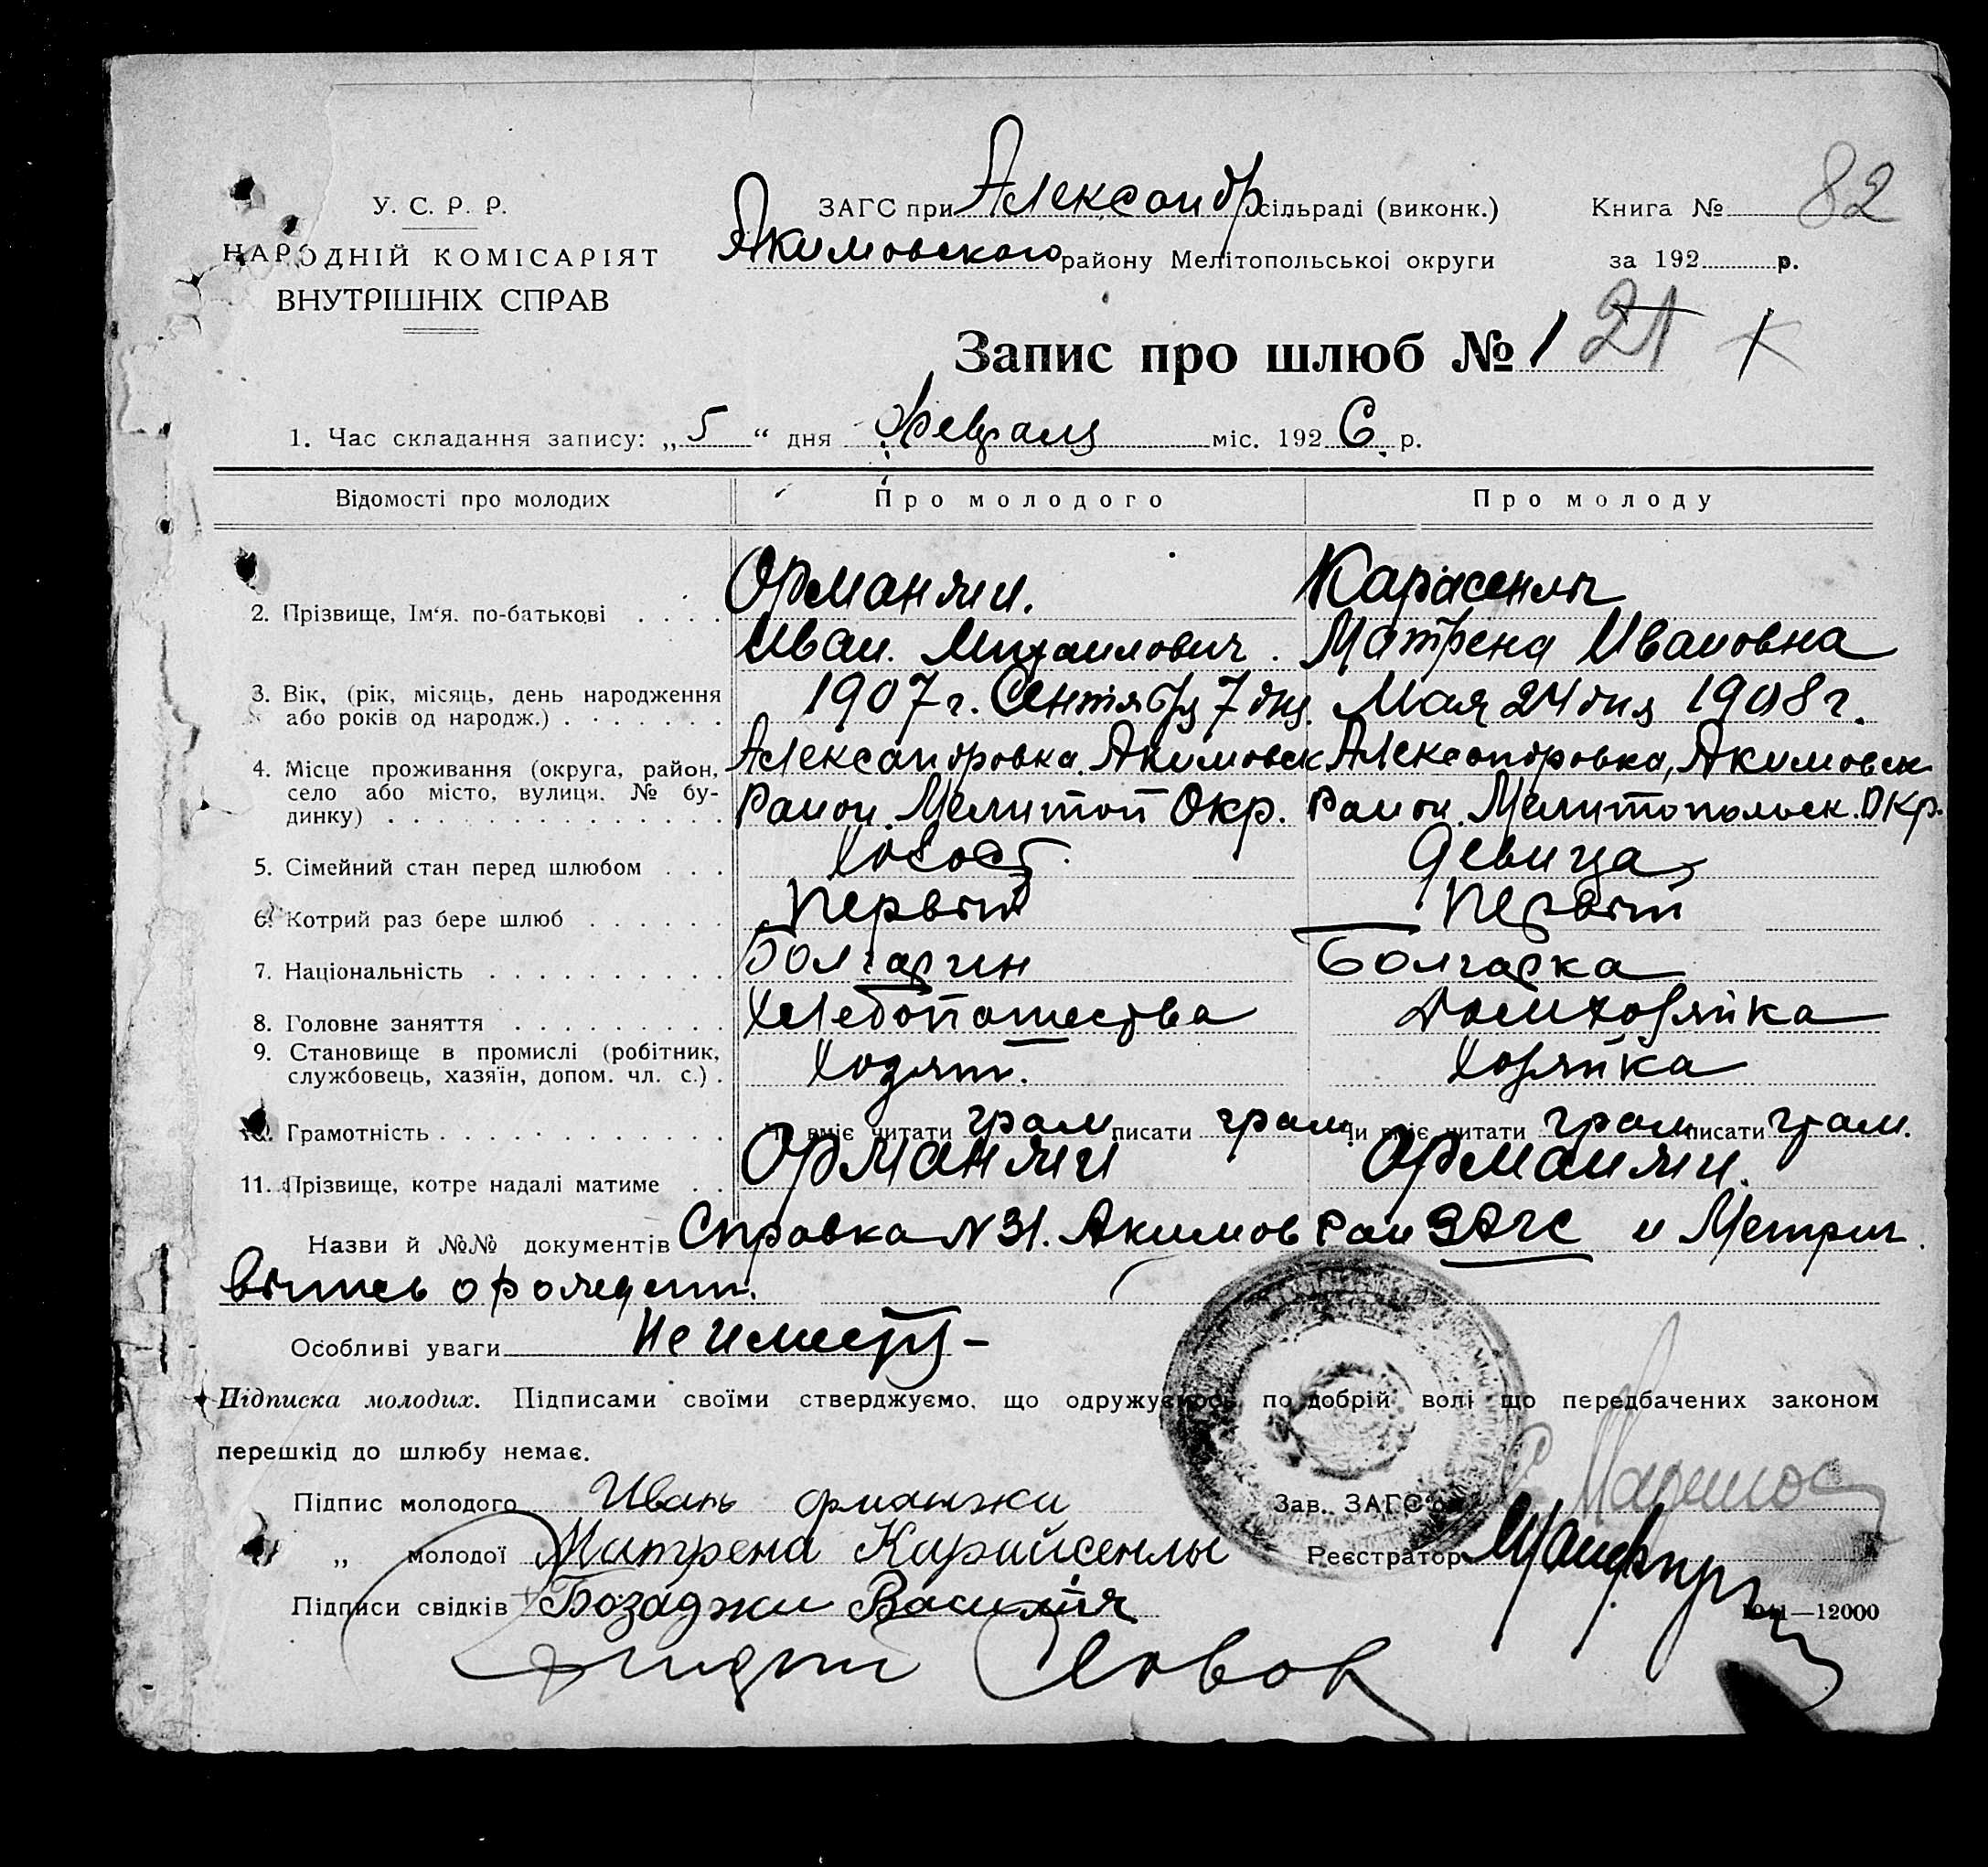 82
У. С. Р. Р.
НАРОДНІЙ КОМІСАРІЯТ
ВНУТРІШНІХ СПРАВ
ЗАГС при Александр сільраді (виконк.)
Акимовского району Мелітопольської округи
Книга №
за 192 р.
Запис про шлюб № 1 21
1. Час складання запису: „5“ дня Февраля міс. 1926 р.
Відомості про молодих Про молодого Про молоду
2. Прізвище, Ім'я. по-батькові Орманжи. Карасенлы
Иван. Михаилович. Матрена Ивановна
3. Вік, (рік, місяць, день народження 1907 г. Сентября 7 дня. Мая 24 дня 1908 г.
або років од народж.)
4. Місце проживання (округа, район, Александровка. Акимовск Александровка, Акимовск
село або місто, вулиця. № бу- Раион. Мелитоп Окр. Раион. Мелитопольск. Окр.
динку)
5. Сімейний стан перед шлюбом Холост. Девица
6. Котрий раз бере шлюб Первый Первый
7. Національність Болгарин Болгарка
8. Головне заняття Хлебопашества Домхозяйка
9. Становище в промислі (робітник, Хозяин. Хозяйка
службовець, хазяїн, допом. чл. с.)
10. Грамотність Чи вміє читати грам писати грам. Чи вміє читати грам писати грам.
11. Прізвище, котре надалі матиме Орманжи Орманжи.
Назви й №№ документів Справка N 31. Акимов Раи ЗАГС и Метрич.
выпись о рожден.
Особливі уваги Не имеется -
Підписка молодих. Підписами своїми стверджуємо, що одружуємось по добрій волі що передбачених законом
перешкід до шлюбу немає.
Підпис молодого Иванъ орманжи
Зав. ЗАГС'ом
„ молодої Матрена Карайсенлы
Реєстратор
Підписи свідків Бозаджи Василий
—12000